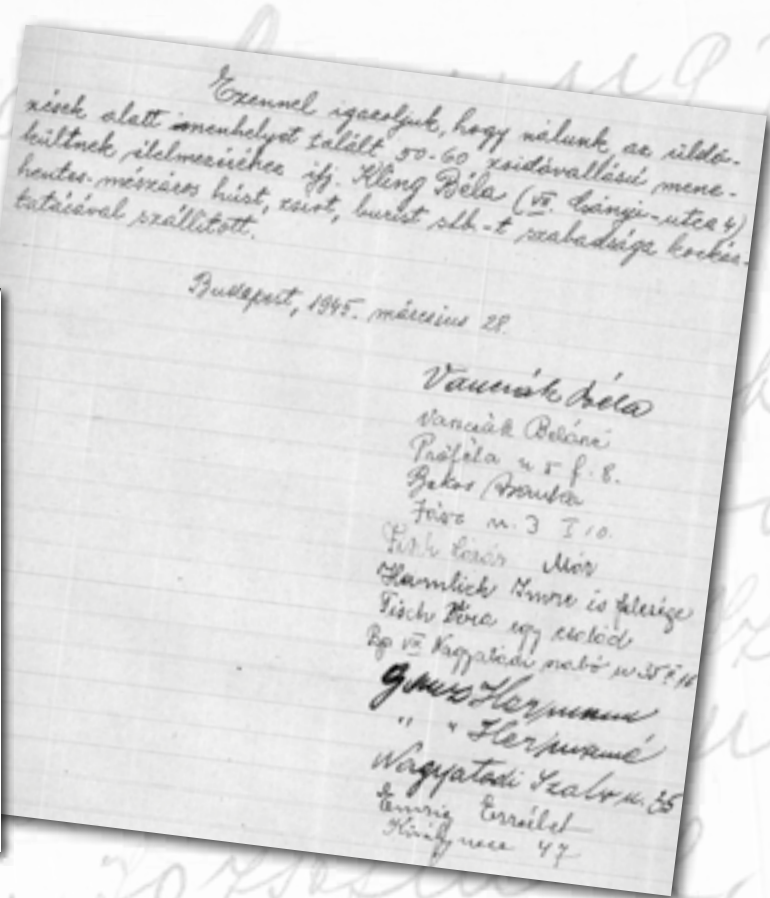 Ezennel igazoljuk, hogy nálunk az üldö-
zések alatt menhelyet talált 50-60 zsidóvallású mene-
kültnek élelmezéséhez ifj. Kling Béla (VII. Csányi-utca 4)
hentes-mészáros húst, zsírt, burist stb.-t szabadsága kockáz-
tatásával szállított.
Budapest, 1945. március 28.
Vanciák Béla
Vanciák Béláné
Próféta u 5 f. 8.
u. 3 I 10.
Mór
Hamlich Imre és felesége
Fisch Vera egy család
Bp VII Nagyatádi szabó u 35
Hermann
" " Hermanné
Nagyatadi Szabó u. 35
Erzsébet
47